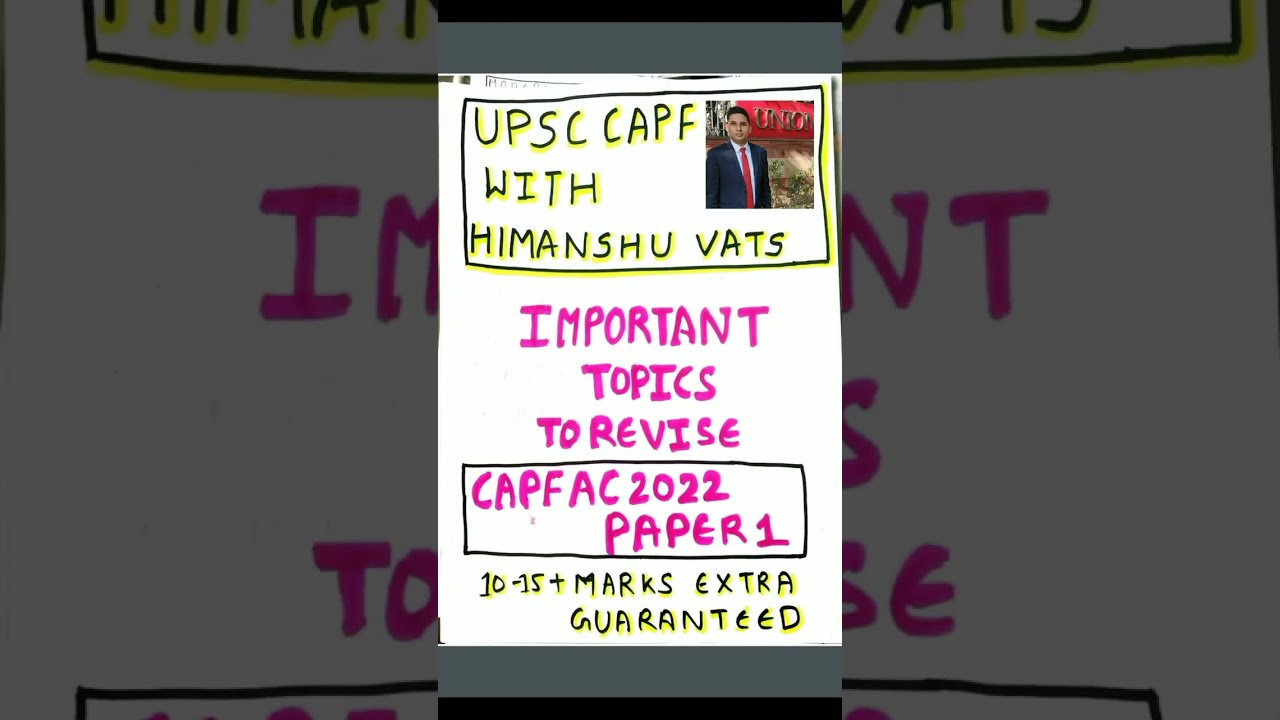 UPSC CAPF
WITH
HIMANSHU VATS
UNION
IMPORTANT
TOPICS
TO REVISE
CAPF AC 2022
PAPER 1
10-15+ MARKS EXTRA
GUARANTEED